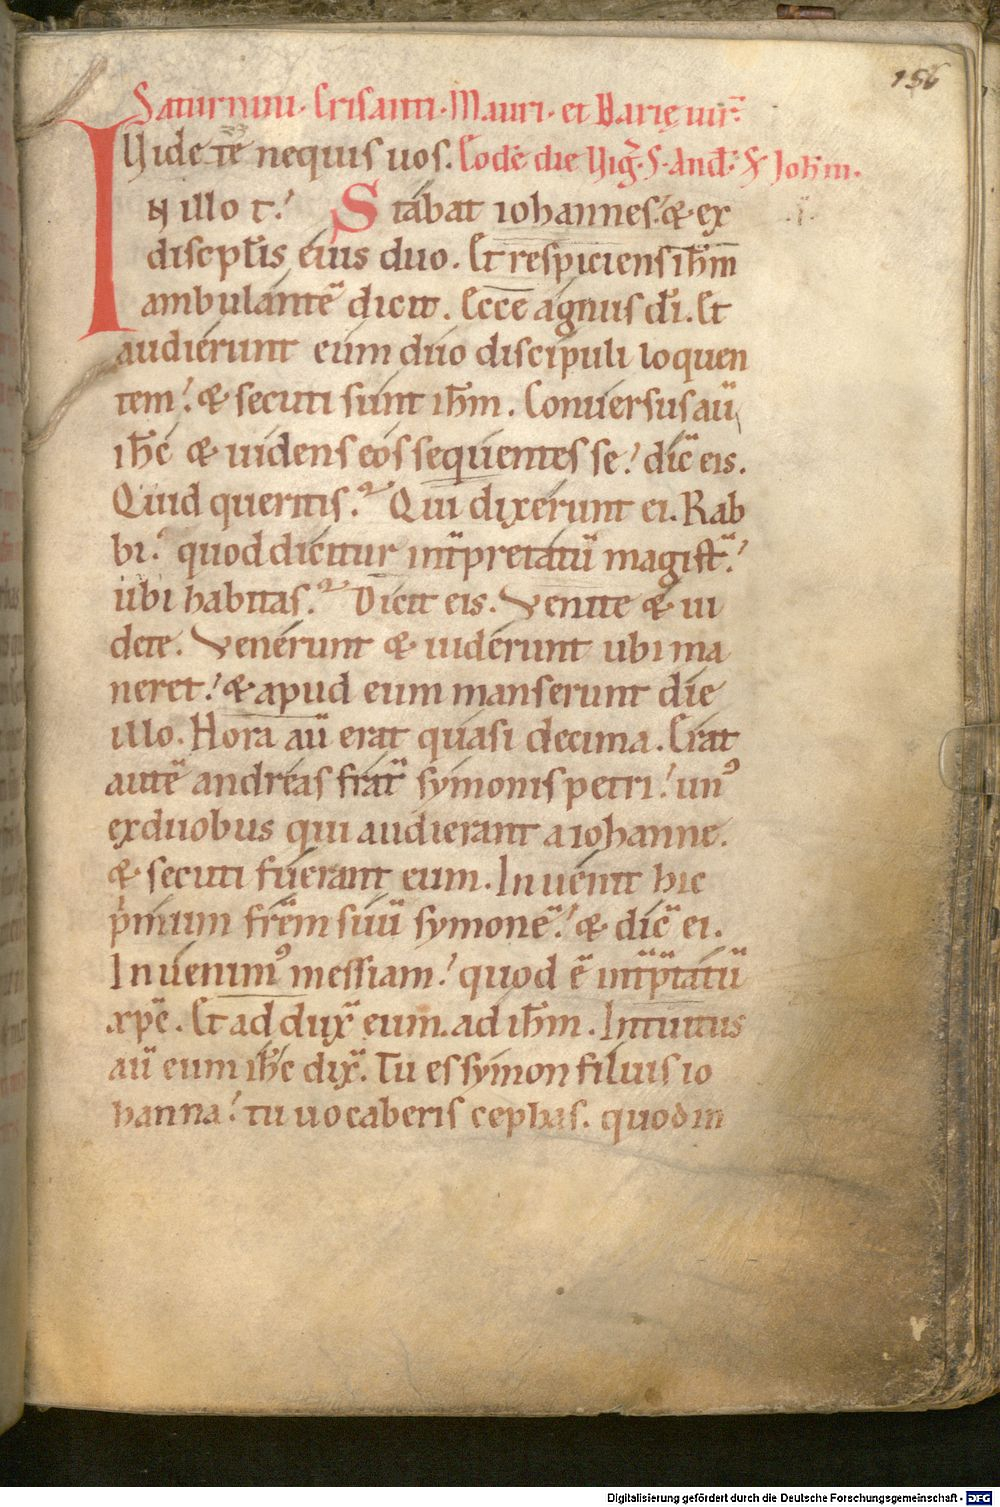 156
Saturnini. Crisanti. Mauri. et Darię uir̃.
Uidete nequis uos. Eodē die Uig̃. S. And̃. Sc̃ Ioh̃m.
IN illo t.' Stabat iohannes.' & ex
discipl̃is eius duo. Et respiciens ih̃m
ambulantē dicit. Ecce agnus dī. Et
audierunt eum duo discipuli loquen
tem.' & secuti sunt ih̃m. Conuersus aū
ih̃c & uidens eos sequentes se.' dic̄ eis.
Quid queritis.? Qui dixerunt ei. Rab
bi.' quod dicitur int̄pretatū magist̄.'
ubi habitas.? Dicit eis. Venite & ui
dete. Venerunt & uiderunt ubi ma
neret.' & apud eum manserunt die
illo. Hora aū erat quasi decima. Erat
autē andreas frat̄ symonis petri.' un᾿
ex duobus qui audierant a iohanne.
& secuti fuerant eum. Inuenit hic
p̄mum frēm suū symonē.' & dic̄ ei.
Inuenim᾿ messiam.' quod ē int̄p̄tatū
xp̄c. Et addux̄ eum. ad ih̃m. Intuitus
aū eum ih̃c dix̄. Tu es symon filius io
hanna.' tu uocaberis cephas. quod in
Digitalisierung gefördert durch die Deutsche Forschungsgemeinschaft - DFG